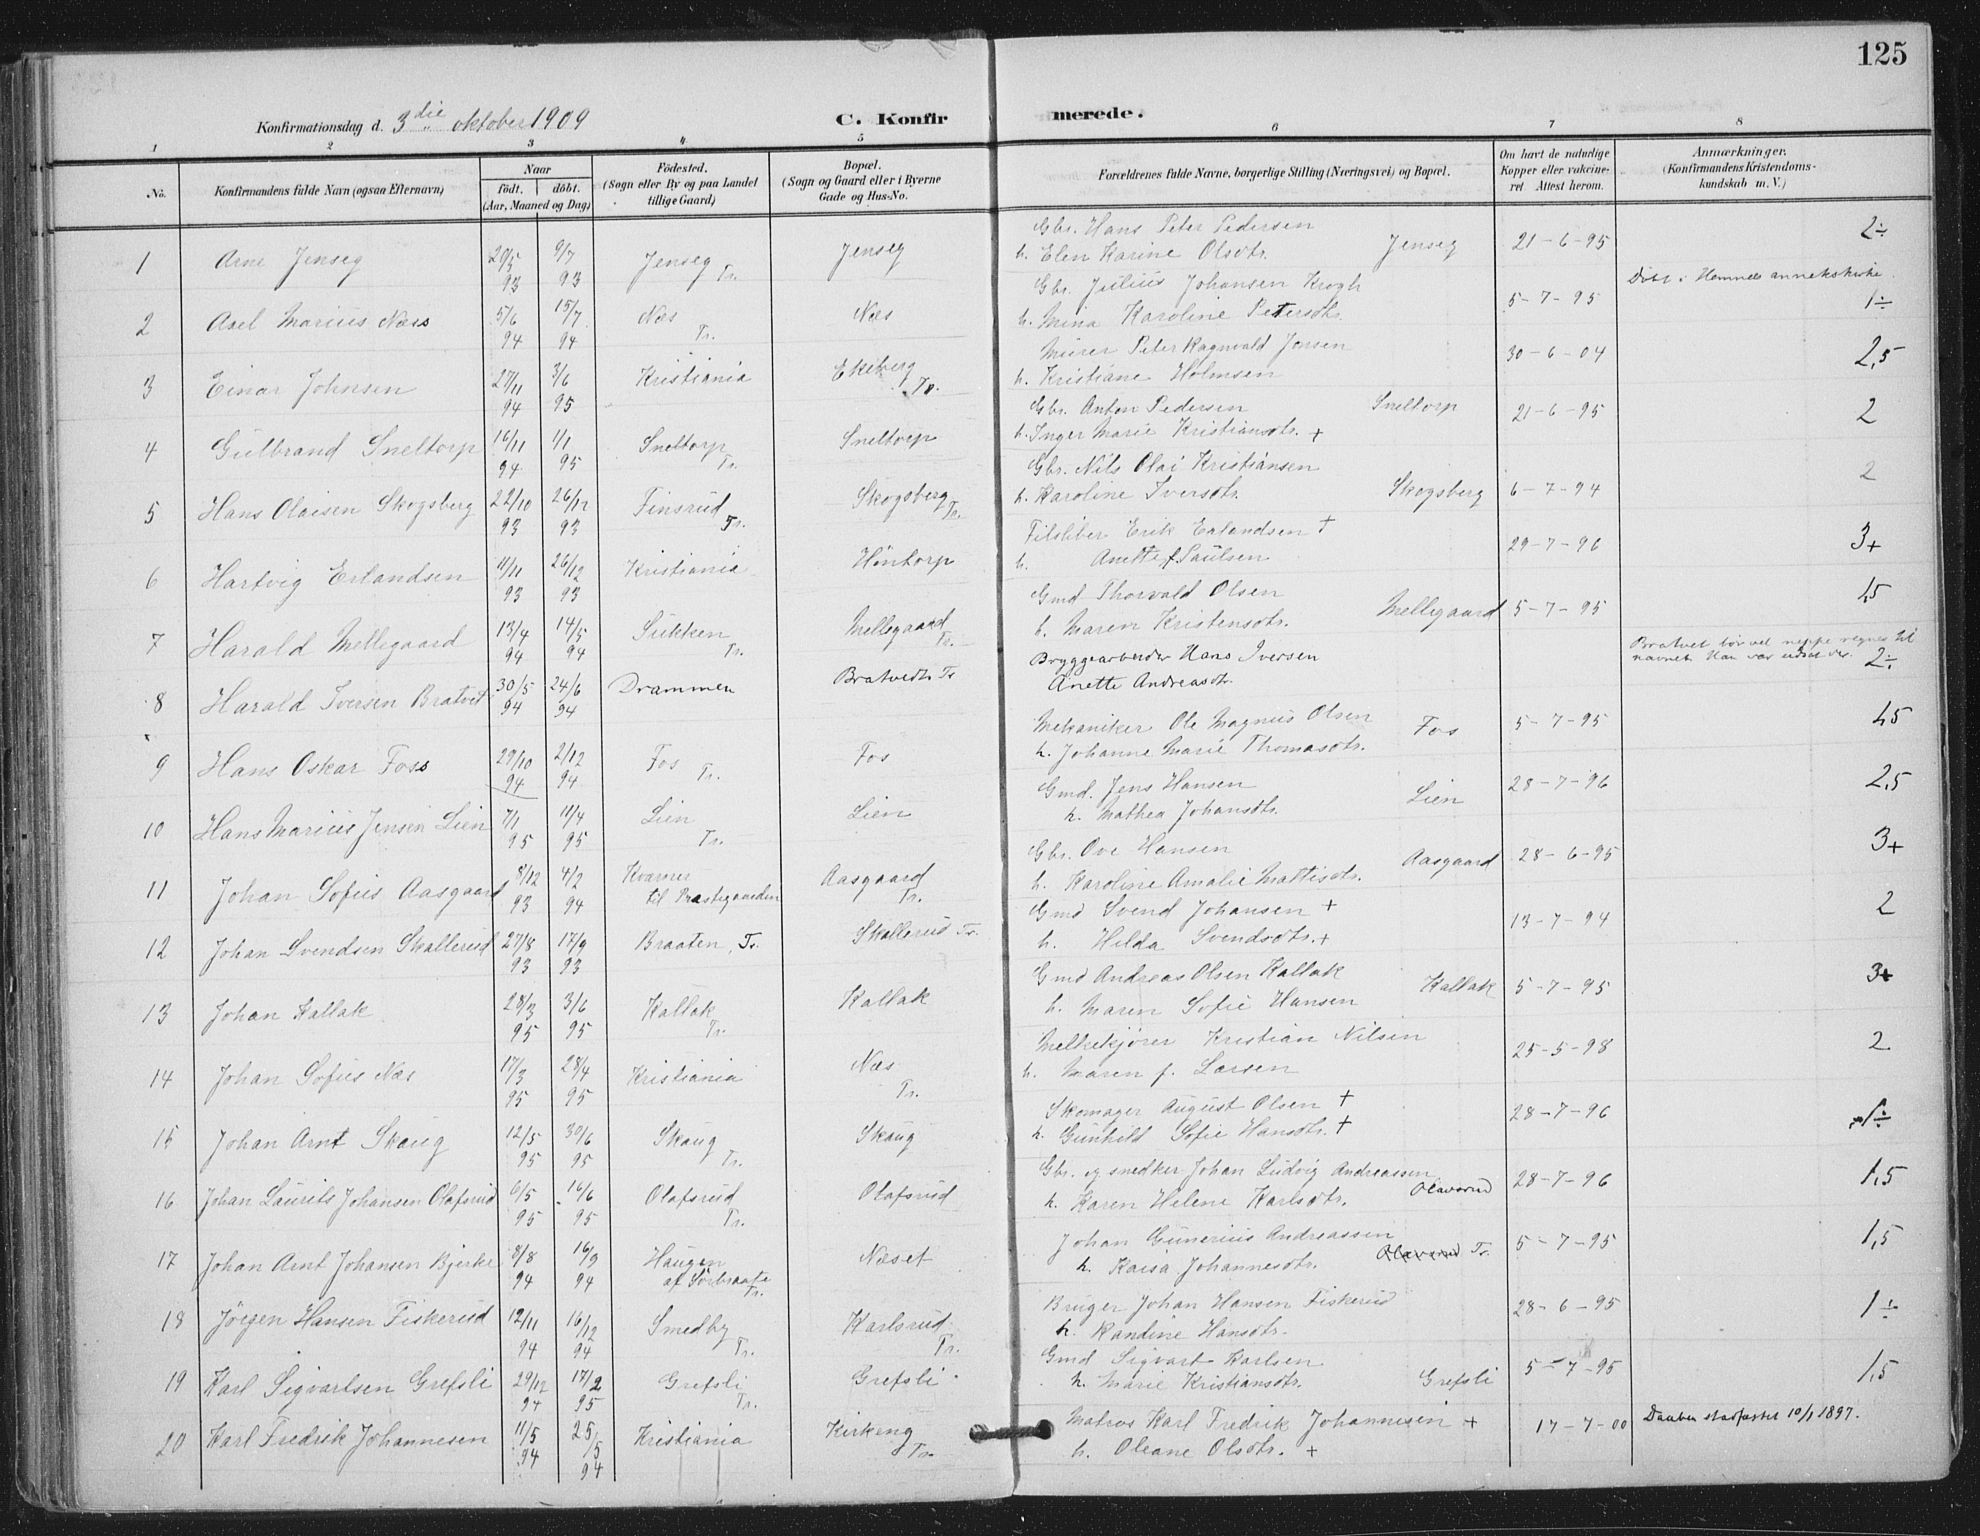 125
Konfirmationsdag d. 3die oktober 1909
C. Konfirmerede.
1 2 3 4 5 6 7 8
No.
Konfirmandens fulde Navn (ogsaa Efternavn)
Naar
födt. döbt.
(Aar, Maaned og Dag)
Födested.
(Sogn eller By og paa Landet
tillige Gaard)
Bopæl.
(Sogn og Gaard eller i Byerne
Gade og Hus-No.
Forældrenes fulde Navne, borgerlige Stilling (Næringsvei) og Bopæl.
Om havt de naturlige
Kopper eller vakcine-
ret. Attest herom.
Anmærkninger.
(Konfirmandens Kristendoms-
kundskab m. V.)
1 Arne Jenseg 29/5 93 9/7 93 Jenseg Tr. Jenseg
Gbr. Hans Peter Pedersen
h. Elen Karine Olsdtr. Jenseg 21-6-95 2÷
2 Axel Marius Næss 5/6 94 15/7 94 Næs Tr. Næs
Gbr. Julius Johansen Krogh
h. Mina Karoline Petersdtr. 5-7-95 Döbt i Hemnes annekskirke. 1÷
3 Einar Johnsen 27/11 94 3/6 95 Kristiania Ekeberg Tr.
Murer Peter Ragnvald Jonsen
h. Kristiane Holmsen 30-6-04 2,5
4 Gulbrand Sneltorp 16/11 94 1/1 95 Sneltorp Tr. Sneltorp
Gbr. Anton Pedersen
h. Inger Marie Kristiansdtr. + Sneltorp 21-6-95 2
5 Hans Olaisen Skogsberg 22/10 93 26/12 93 Finsrud Tr. Skogsberg Tr.
Gbr. Nils Olai Kristiansen
h. Karoline Iversdtr. Skogsberg 6-7-94 2
6 Hartvig Erlandsen 11/11 93 26/12 93 Kristiania Höntorp
Filsliber Erik Erlandsen +
h. Anette f. Paulsen 29-7-96 3+
7 Harald Mellegaard 13/4 94 14/5 94 Sukken Tr. Mellegaard Tr.
Gmd Thorvald Olsen
h. Maren Kristensdtr. Mellegaard 5-7-95 1,5
8 Harald Iversen Bratvet 30/5 94 24/6 94 Drammen Bratvedt Tr
Bryggearbeider Hans Iversen
Anette Andreasdtr. Bratvet bör vel neppe regnes til
navnet. Han var udsat der. 2÷
9 Hans Oskar Foss 29/10 94 2/12 94 Fos Tr. Fos
Mekaniker Ole Magnus Olsen
h. Johanne Marie Thomasdtr. Fos 5-7-95 1,5
10 Hans Marius Jensen Lien 7/1 95 11/4 95 Lien Tr. Lien
Gmd. Jens Hansen
h. Mathea Johansdtr. Lien 28-7-96 2,5
11 Johan Sofus Aasgaard 8/12 93 4/2 94 Kvarner
til Prestegaarden Aasgaard Tr.
Gbr. Ove Hansen
h. Karoline Amalie Mattisdtr. Aasgaard 28-6-95 3+
12 Johan Svendsen Skallerud 27/8 93 17/9 93 Braaten, Tr. Skallerud Tr.
Gmd Svend Johansen +
h. Hilda Svendsdtr. + 13-7-94 2
13 Johan Kallak 28/3 95 3/6 95 Kallak Tr. Kallak
Gmd Andreas Olsen Kallak
h. Maren Sofie Hansen Kallak 5-7-95 3+
14 Johan Sofus Næs 17/3 95 28/4 95 Kristiania Næs Tr.
Melkekjörer Kristian Nilsen
h. Maren f. Larsen 25-5-98 2
15 Johan Arnt Skaug 12/5 95 30/6 95 Skaug Tr. Skaug
Skomager August Olsen +
h. Gunhild Sofie Hansdtr. + 28-7-96 1÷
16 Johan Laurits Johansen Olafsrud 6/5 95 16/6 95 Olafsrud Tr. Olafsrud
Gbr. og snedker Johan Ludvig Andreassen
h. Karen Helene Karlsdtr. Olavsrud 28-7-96 1,5
17 Johan Arnt Johansen Bjerke 8/8 94 16/9 94 Haugen
af Sörbraate Tr. Næset
Johan Gunerius Andreassen
h. Kaisa Johannesdtr. Olavsrud Tr. 5-7-95 1,5
18 Jörgen Hansen Fiskerud 12/11 94 16/12 94 Smedby Tr. Karlsrud Tr.
Bruger Johan Hansen Fiskerud
h. Randine Hansdtr. 28-6-95 1÷
19 Karl Sigvartsen Grefsli 29/12 94 17/2 95 Grefsli Tr. Grefsli
Gmd Sigvart Karlsen
h. Marie Kristiansdtr. Grefsli 5-7-95 1,5
20 Karl Fredrik Johannesen 11/5 94 25/5 94 Kristiania Kirkeng Tr.
Matros Karl Fredrik Johannesen +
h. Oleane Olsdtr. + 17-7-00 Daaben stadfæstet 10/1 1897.